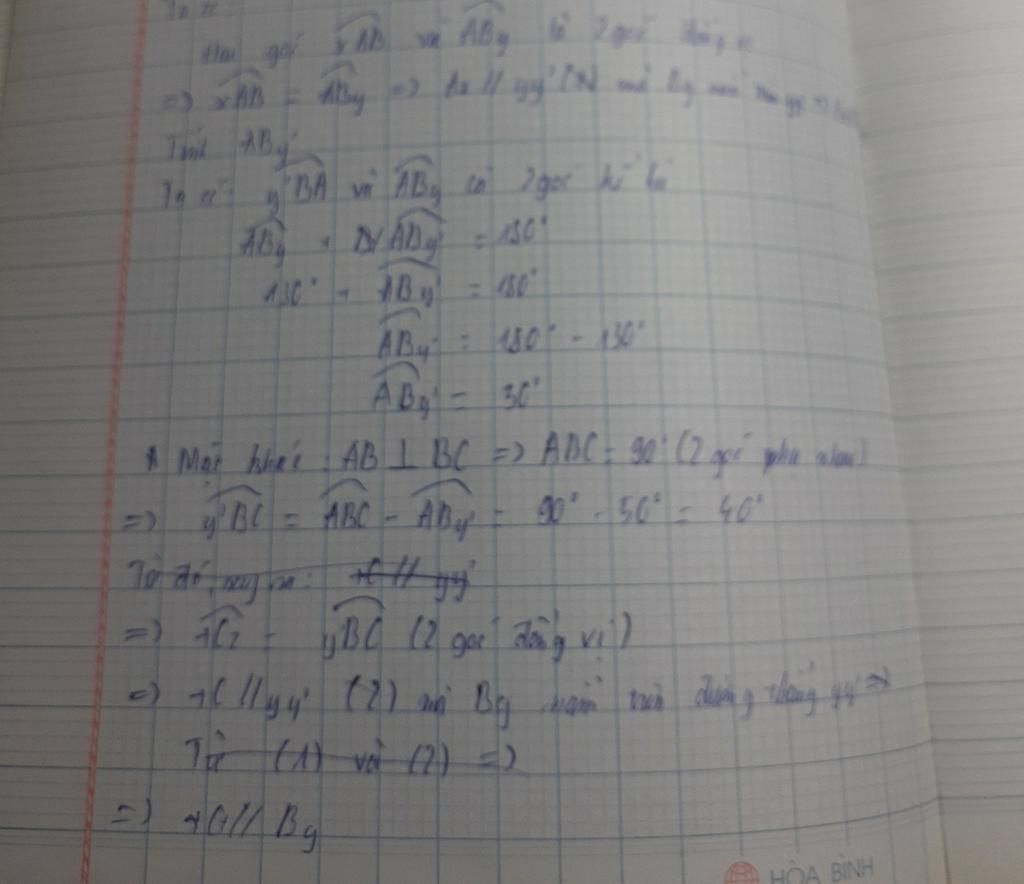 Ta có:
Hai góc xAB và ABy là 2 góc đồng vị
=> xAB = ABy => Ax // yy' (1) mà By nằm trên yy' =>
Tính ABy'
Ta có: y'BA và ABy là 2 góc kề bù
ABy + ABy' = 180°
130° + ABy' = 180°
ABy' = 180° - 130°
ABy' = 50°
* Mặt khác: AB ⊥ BC => ABC = 90° (2 góc phụ nhau)
=> y'BC = ABC - ABy' = 90° - 50° = 40°
Từ đó, suy ra: tC // yy'
=> tCz = yBC (2 góc đồng vị)
=> tC // yy' (2) mà By nằm trên đường thẳng yy' =>
Từ (1) và (2) =>
=> tC // By
HÒA BÌNH